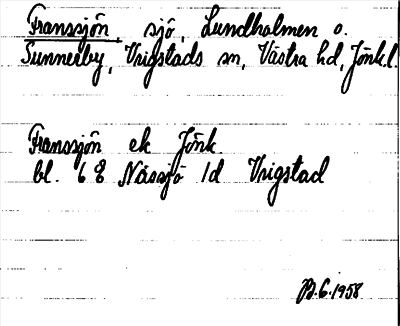 Franssjön, sjö, Lundholmen o.
Sunnerby, Vrigstads sn, Västra hd, Jönk.l.
Franssjön ek Jönk.
bl. 6 8 Nässjö 1d Vrigstad
B.G. 1958